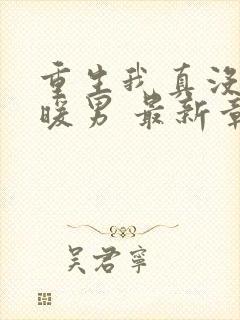 重生我真没
暖男 最新章
吴君宁